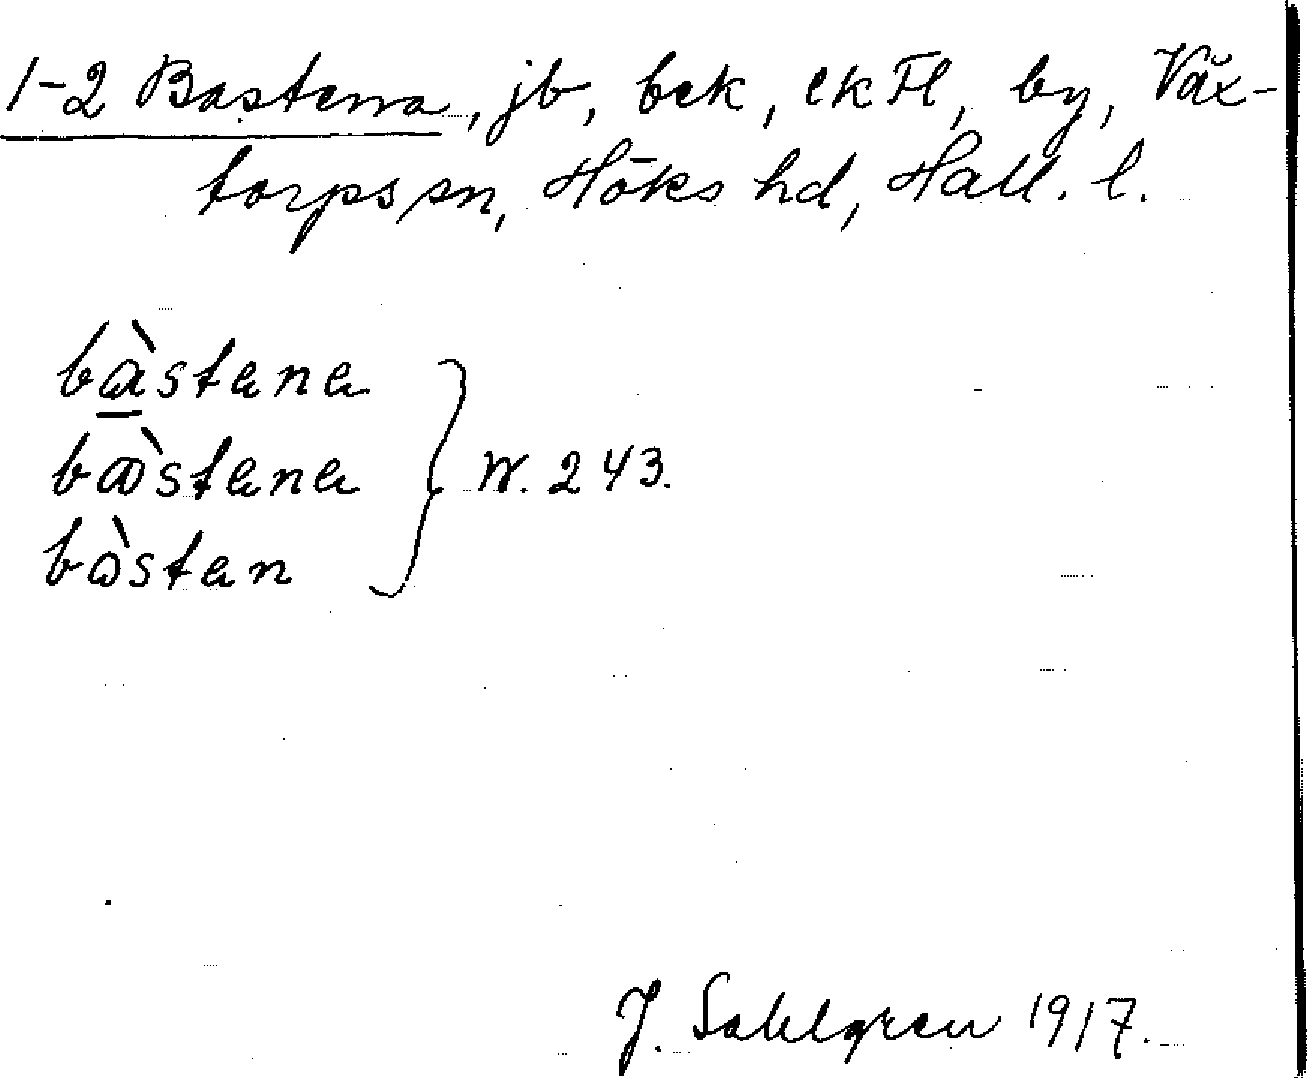 1-2 Bastena, jb, bek, ekFl, by, Väx-
torps sn, Höks hd, Hall. l.
bàstena
bàstena
bàsten
W. 243.
J. Sahlgren 1917.